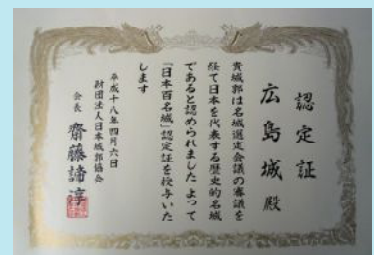 認定証
広島城 殿
貴城郭は名城選定会議の審議を
経て日本を代表する歴史的名城
であると認められました よって
「日本百名城」認定証を授与いた
します
平成十八年四月六日
財団法人日本城郭協会
会長 齋藤諦淳